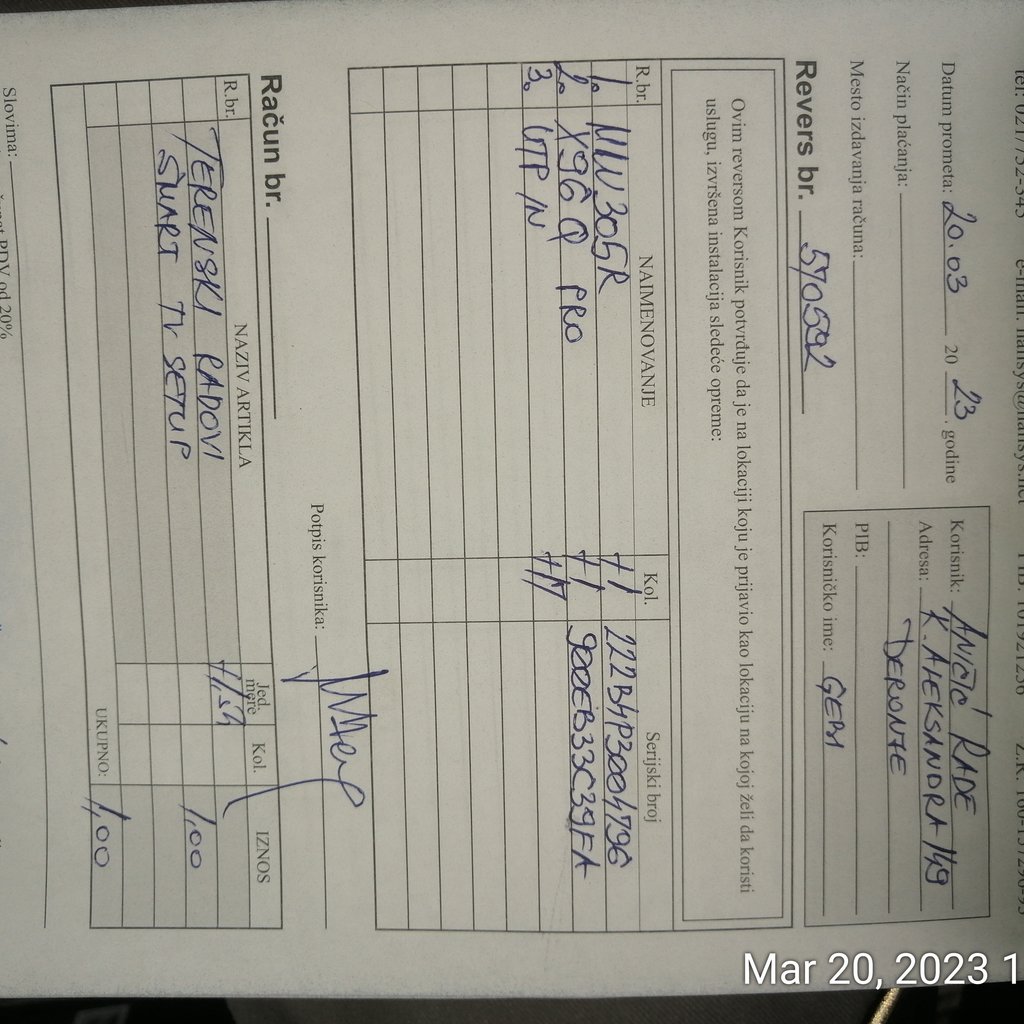 tel: 021/752-545 e-mail: hansys@hansys.net
Datum prometa: 20.03 20 23. godine
Način plaćanja:
Mesto izdavanja računa:
Korisnik: ANIČIĆ RADE
Adresa: K. ALEKSANDRA 149
DERONJE
PIB:
Korisničko ime:
Revers br. 570592
Ovim reversom Korisnik potvrđuje da je na lokaciji koju je prijavio kao lokaciju na kojoj želi da koristi
uslugu, izvršena instalacija sledeće opreme:
R.br. NAIMENOVANJE Kol. Serijski broj
1. MW305R +1 222B4P3004796
2. X96Q PRO +1 900EB33C39FA
3. UTP N
Potpis korisnika:
Račun br.
R.br. NAZIV ARTIKLA Jed. mere Kol. IZNOS
TERENSKI RADOVI
SMART TV SETUP 1,00
UKUPNO: 1,00
Slovima:
PDV od 20%
Mar 20, 2023 1